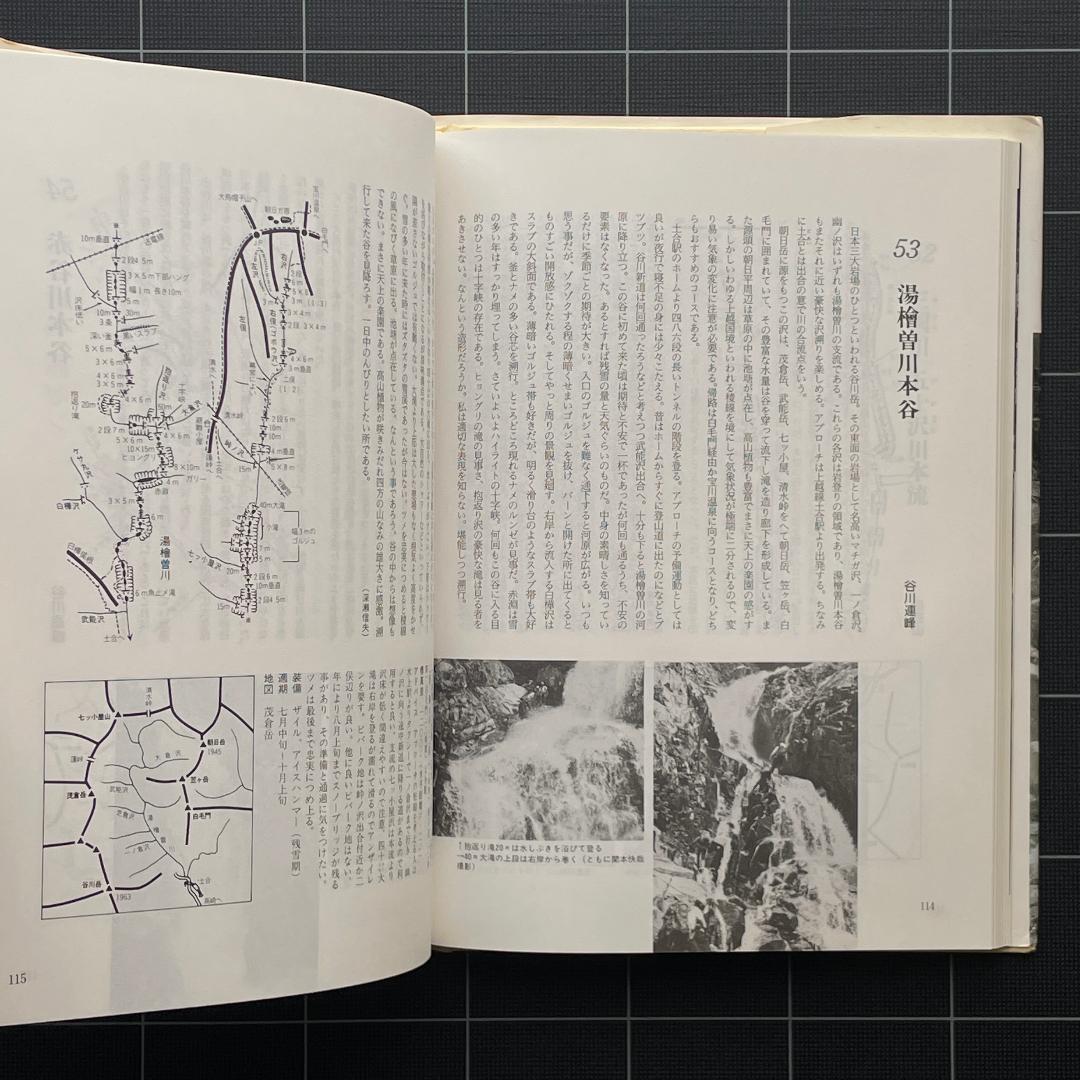 53
湯檜曽川本谷
谷川連峰
日本三大岩場のひとつといわれる谷川岳。その東面の岩場として名高いマチガ沢、一ノ倉沢、
幽ノ沢はいずれも湯檜曽川の支流である。これらの各沢は岩登りの領域であり、湯檜曽川本谷
もまたそれに近い豪快な沢溯りを楽しめる。アプローチは上越線土合駅より出発する。ちなみ
に土合とは出合の意で川の合流点をいう。
朝日岳に源をもつこの沢は、茂倉岳、武能岳、七ッ小屋、清水峠をへて朝日岳、笠ヶ岳、白
毛門に囲まれていて、その豊富な水量は谷を穿って流下し滝を造り廊下を形成している。ま
た源頭の朝日平周辺は草原の中に池塘が点在し、高山植物も豊富でまさに天上の楽園の感がす
る。しかしいわゆる上越国境といわれる稜線を境にして気象状況が極端に二分されるので、変
り易い気象の変化に注意が必要である。帰路は白毛門経由か宝川温泉に向うコースとなり、どち
らもおすすめのコースである。
土合駅のホームより四八六段の長いトンネルの階段を登る。アプローチの予備運動としては
良いが夜行で寝不足の身には少々こたえる。昔はホームからすぐに登山道に出たのになどとブ
ツブツ。谷川新道は何回通ったろうなどと考えつつ武能沢出合へ。十分も下ると湯檜曽川の河
原に降り立つ。この谷に初めて来た頃は期待と不安で一杯であったが何回も通るうち、不安の
要素はなくなった。あるとすれば残雪の量と天気ぐらいのものだ。中身の素晴しさを知ってい
るだけに季節ごとの期待が大きい。入口のゴルジュを難なく通下すると河原が広がる。いつも
思う事だが、ゾクゾクする程の薄暗くせまいゴルジュを抜け、パーンと開けた所に出てくると
ものすごい開放感にひたれる。そしてやっと周りの景観を見廻す。右岸から流入する白樺沢は
スラブの大斜面である。薄暗いゴルジュ帯も好きだが、明るく滑り台のようなスラブ帯も大好
きである。釜とナメの多い谷芯を溯行。ところどころ現れるナメのルンゼが見事だ。赤淵は雪
の多い年はすっかり埋ってしまう。さていよいよハイライトの十字峡。何回もこの谷に入る目
的のひとつは十字峡の存在である。ヒョングリの滝の見事さ、抱返り沢の豪快な滝は見る者を
あきさせない。なんという造形だろうか。私は適切な表現を知らない。堪能しつつ溯行。
↑抱返り滝20mは水しぶきを浴びて登る
→40m大滝の上段は右岸から巻く（ともに関本快哉
撮影）
114
できない。まさに天上の楽園である。高山植物が咲きみだれ四方の山なみの雄大さに感激。溯
行して来た谷を見降ろす。一日中のんびりとしたい所である。
（深瀬信夫）
大烏帽子山へ
宝川温泉へ
朝日方面
白毛門
送電線
10m垂直
2段4.5m
3×5m下部ハング
幅1m 長さ10m
5m
10m
30m
3条
沢床低い
深い釜
スラブ
5×6m
3×6m
4×6m
3×6m
3×5m
抱返り沢
20m
十字峡
50m
大倉沢
2段7m
4×6m
5×6m
10×15m
ヒョングリ
8×10m
ガリー
4×6m
赤淵
3×5m
ケサ丸沢
白樺沢
6m
湯檜曽川
白樺尾根
6m魚止メ滝
武能沢
土合へ
左俣
右俣
2段
3m
4×3m
2段4×3m
4×6m
3m垂直
二俣
(1:2)
清水へ
清水峠
避難小屋
土合へ
峠ノ沢
2段6m
10m
10m
15m
4m
5×8m
40m大滝
小滝
幅3mの
ゴルジュ
7m
5m
七ツ小屋沢
20m
2段6m
10m垂直
2段4.5m
15m
滝は右岸を登るが濡れて滑るのでアンザイレ
ンを要す。ビバーク地は峠ノ沢出合付近か二
俣辺りが良い。他に良いビバーク地はない。
年により八月上旬までスノーブリッジが残る
事があり、その準備と通過に気をつけたい。
ツメは最後まで忠実につめ上る。
装備　ザイル、アイスハンマー（残雪期）
適期　七月中旬〜十月上旬
地図　茂倉岳
清水峠
七ッ小屋山
蓬峠
大倉沢
朝日岳
1945
笠ヶ岳
武能沢
茂倉岳
芝倉沢
白毛門
湯檜曽川
一ノ倉沢
谷川岳
1963
土合
高崎へ
115